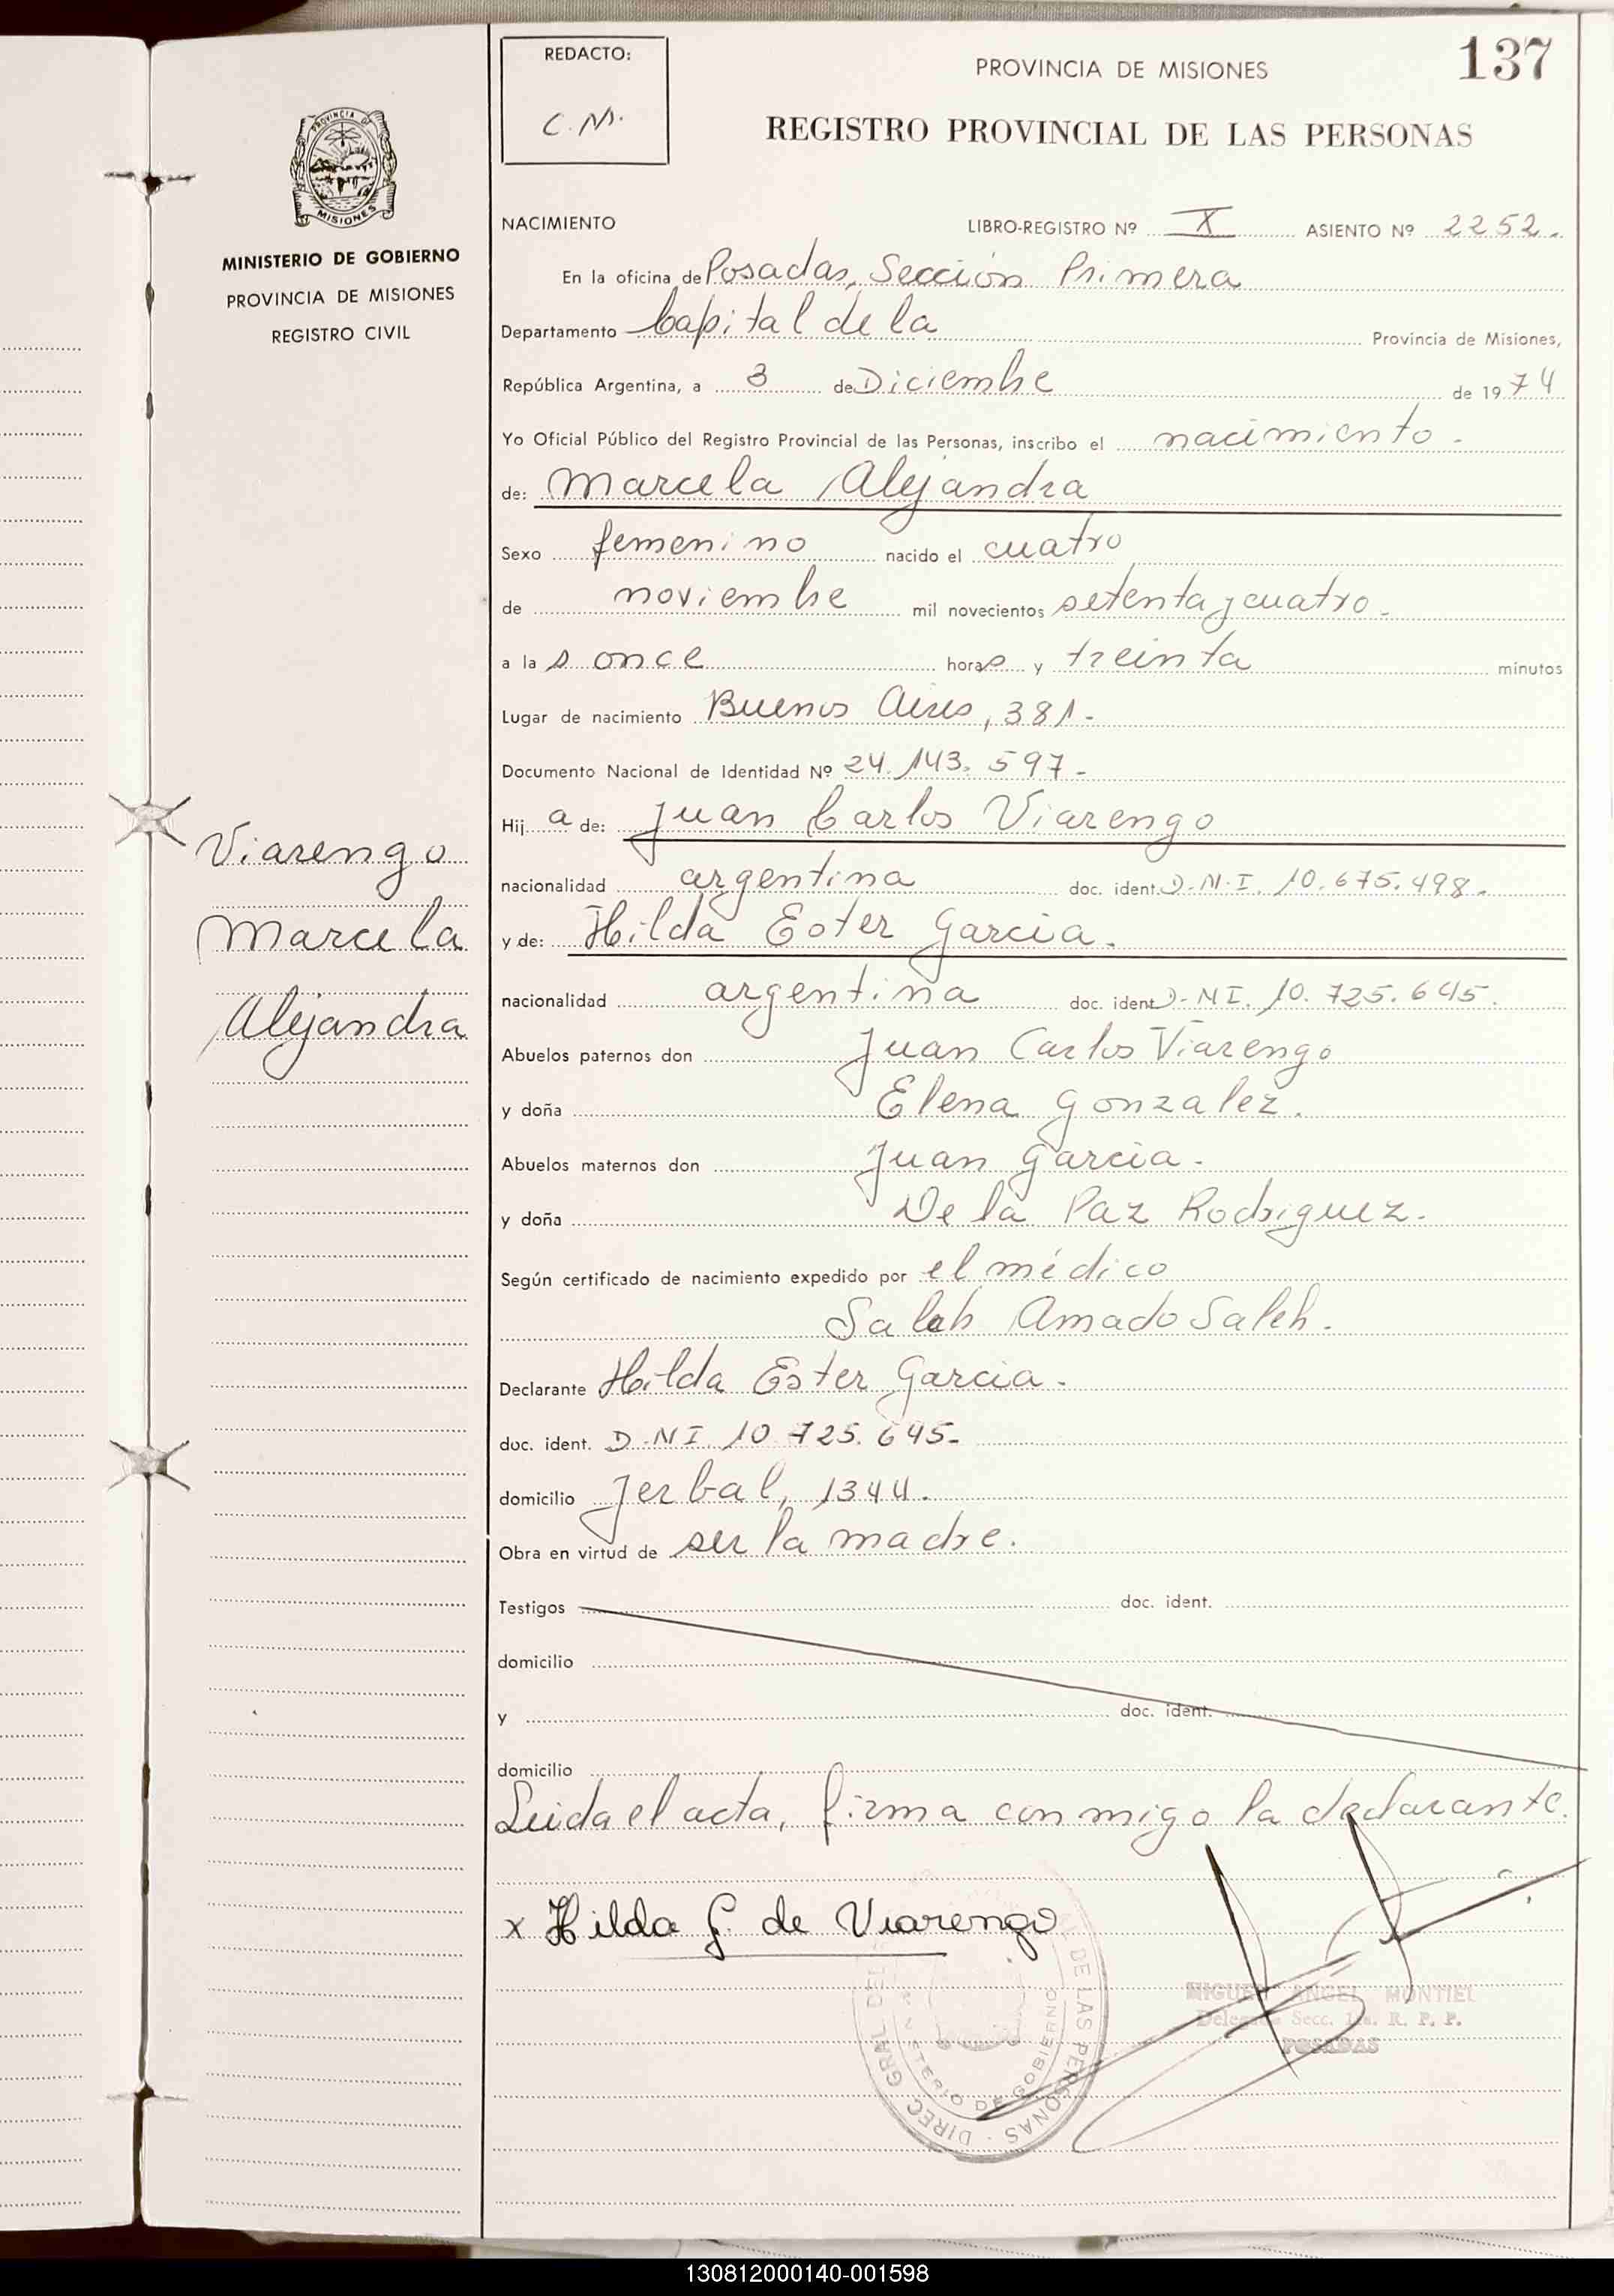 REDACTO:
C.M.
PROVINCIA DE MISIONES
137
REGISTRO PROVINCIAL DE LAS PERSONAS
PROVINCIA DE
MISIONES
MINISTERIO DE GOBIERNO
PROVINCIA DE MISIONES
REGISTRO CIVIL
NACIMIENTO LIBRO-REGISTRO Nº X ASIENTO Nº 2252.
En la oficina de Posadas, Sección Primera
Departamento Capital de la Provincia de Misiones,
República Argentina, a 3 de Diciembre de 1974
Yo Oficial Público del Registro Provincial de las Personas, inscribo el nacimiento.
de: Marcela Alejandra
Sexo femenino nacido el cuatro
de noviembre mil novecientos setenta y cuatro.
a las once horas y treinta minutos
Lugar de nacimiento Buenos Aires, 381.
Documento Nacional de Identidad Nº 24.143.597.
Hija de: Juan Carlos Viarengo
nacionalidad argentina doc. ident. D.N.I. 10.675.498.
y de: Hilda Ester Garcia.
nacionalidad argentina doc. ident. D.N.I. 10.725.645.
Viarengo
Marcela
Alejandra
Abuelos paternos don Juan Carlos Viarengo
y doña Elena Gonzalez.
Abuelos maternos don Juan Garcia.
y doña De la Paz Rodriguez.
Según certificado de nacimiento expedido por el médico
Saleh Amado Saleh.
Declarante Hilda Ester Garcia.
doc. ident. D.N.I. 10.725.645-
domicilio Jerbal, 1344.
Obra en virtud de ser la madre.
Testigos doc. ident.
domicilio
y doc. ident.
domicilio
Leida el acta, firma conmigo la declarante.
x Hilda G. de Viarengo
MIGUEL ANGEL MONTIEL
Delegado Secc. 1ra. R. P. P.
POSADAS
DIREC. GRAL. DEL DE LAS PERSONAS
MINISTERIO DE GOBIERNO
130812000140-001598